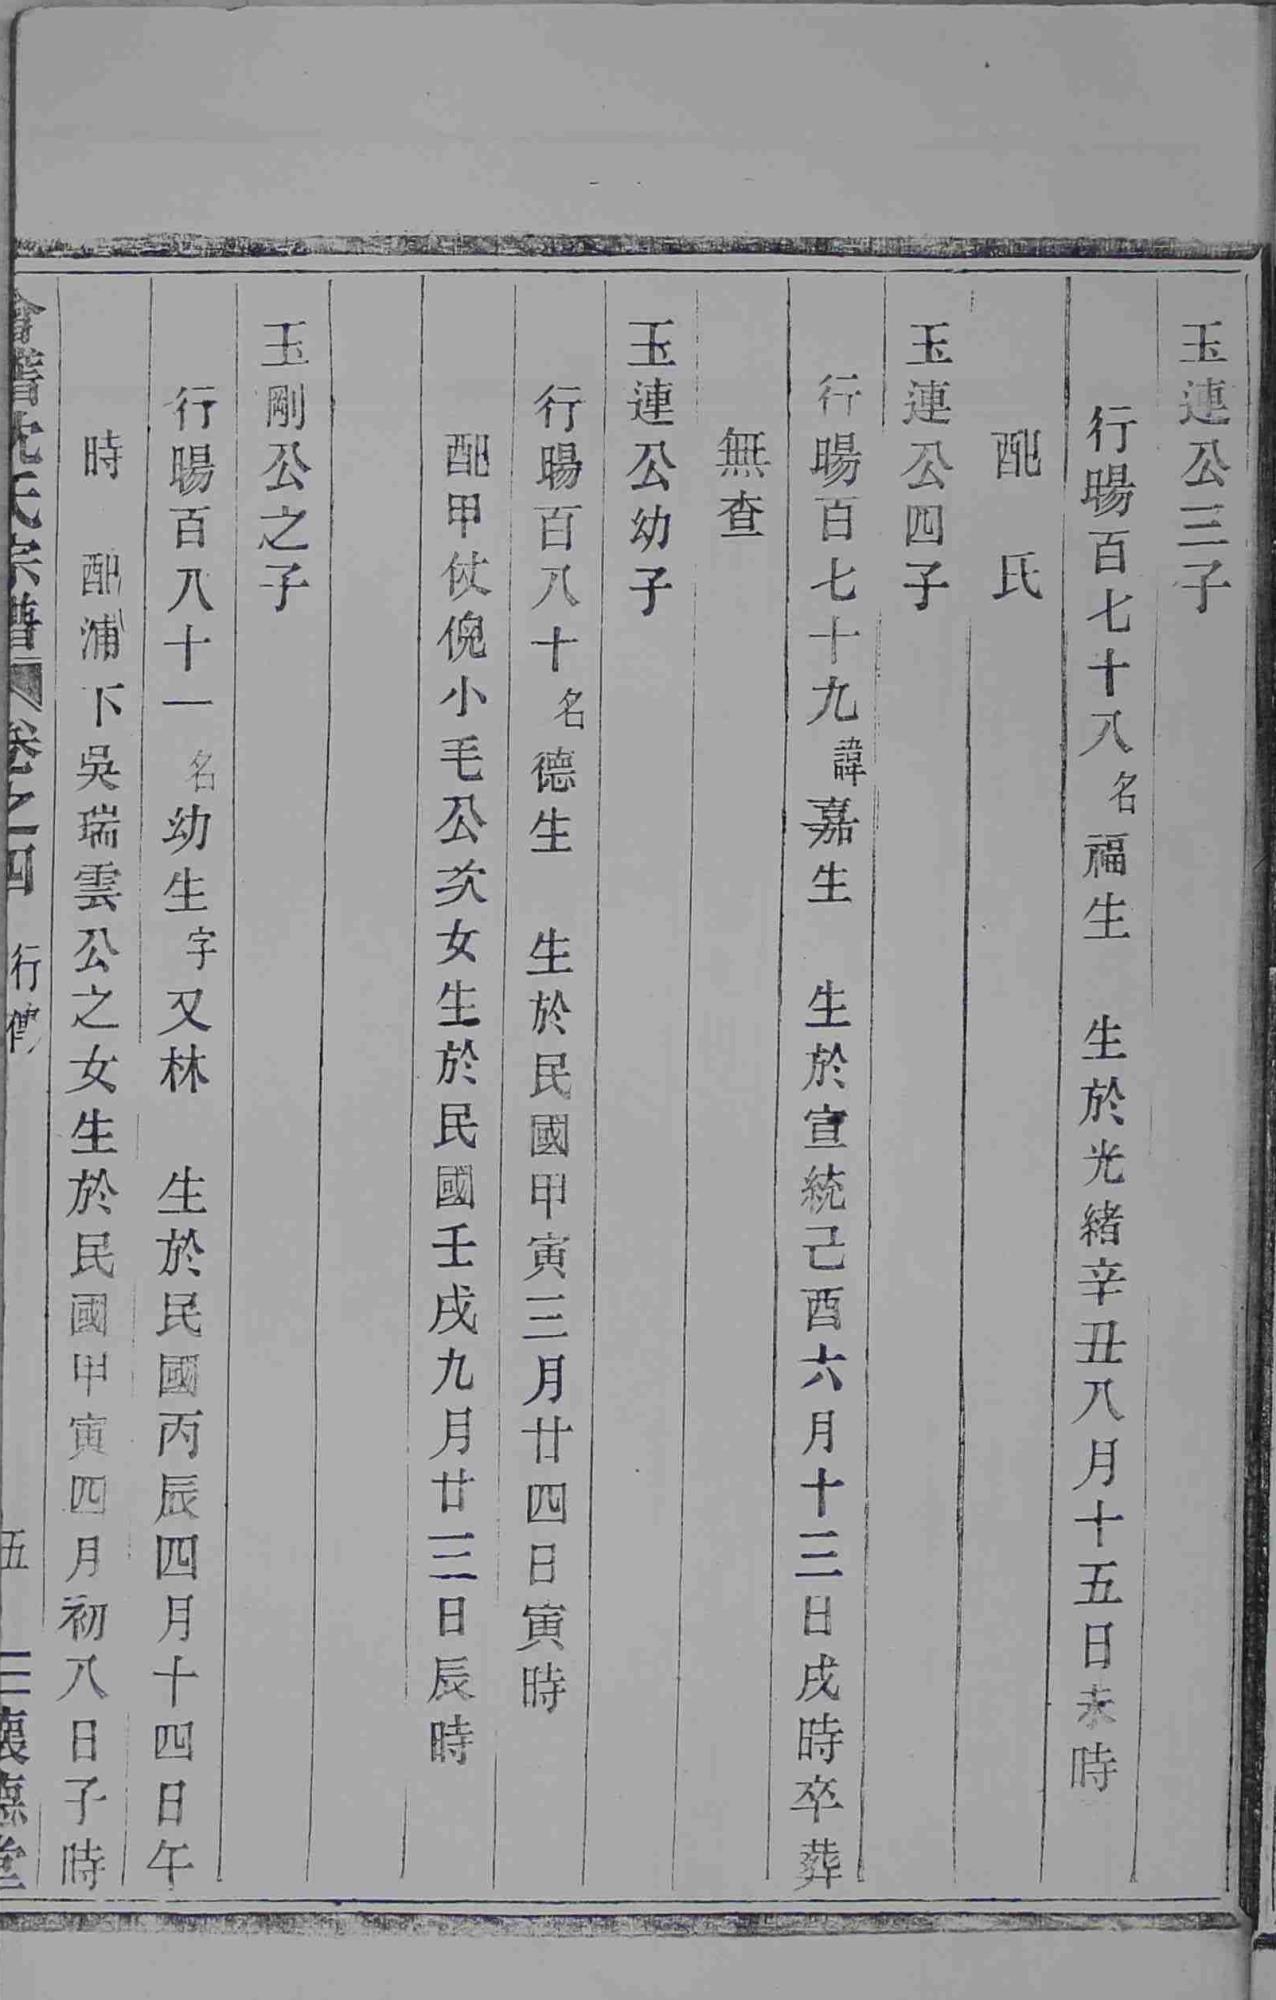 玉連公三子
行暘百七十八名福生　生於光緒辛丑八月十五日未時
配　氏
玉連公四子
行暘百七十九諱嘉生　生於宣統己酉六月十三日戌時卒葬
無查
玉連公幼子
行暘百八十名德生　生於民國甲寅三月廿四日寅時
配甲仗倪小毛公次女生於民國壬戌九月廿三日辰時
玉剛公之子
行暘百八十一名幼生字又林　生於民國丙辰四月十四日午
時　配浦下吳瑞雲公之女生於民國甲寅四月初八日子時
會稽沈氏宗譜　卷之四　行傳　五　三懷德堂